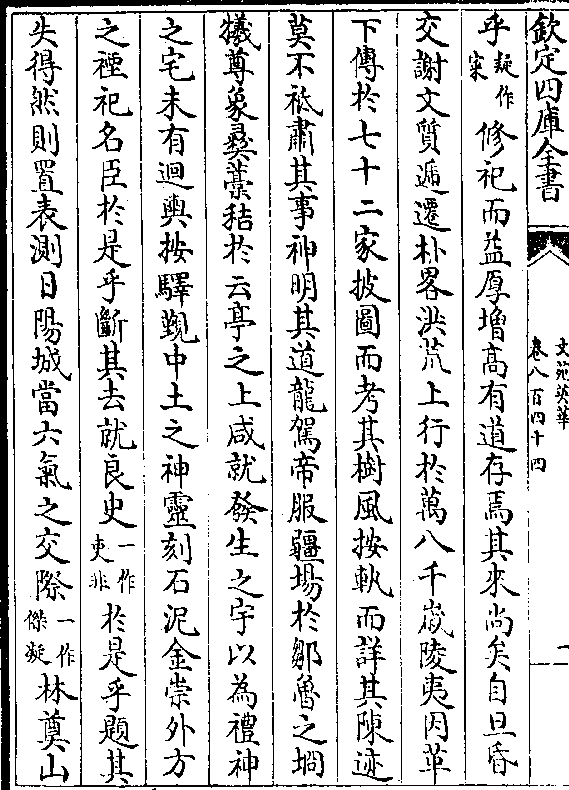 欽定四庫全書
文苑英華
卷八百四十四
一
乎疑作寀修祀而益厚增髙有道存焉其來尚矣自旦昏
交謝文質遞遷朴畧洪荒上行於萬八千嵗陵夷因革
下傳於七十二家披圖而考其樹風按軌而詳其陳迹
莫不祗肅其事神明其道龍駕帝服疆場於鄒魯之堈
犧尊象彞藁秸於云亭之上咸就發生之宇以為禮神
之宅未有迴輿按驛覲中土之神靈刻石泥金崇外方
之禋祀名臣於是乎斷其去就良史一作吏非於是乎題其
失得然則置表測日陽城當六氣之交際一作傑疑林奠山